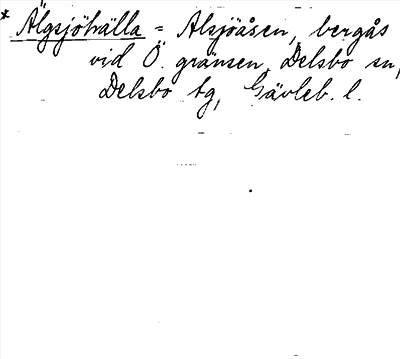 * Älgsjöhälla = Alsjöåsen, bergås
vid Ö. gränsen, Delsbo sn,
Delsbo tg, Gävleb. l.